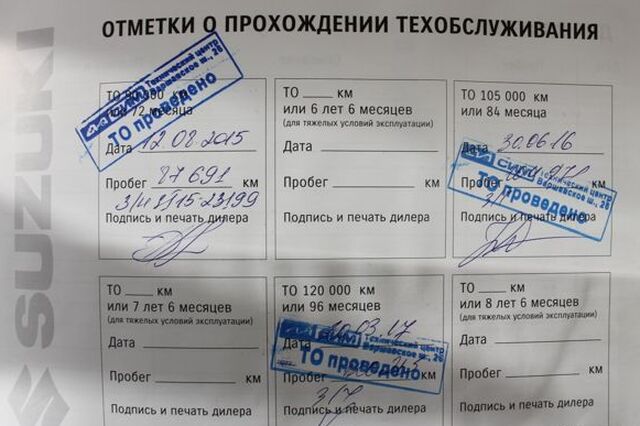 SUZUKI
ОТМЕТКИ О ПРОХОЖДЕНИИ ТЕХОБСЛУЖИВАНИЯ
ТО 90 000 км
или 72 месяца
СИМ Технический центр
Варшавское ш., 26
ТО проведено
Дата 12.08.2015
Пробег 87 691 км
Подпись и печать дилера
ТО км
или 6 лет 6 месяцев
(для тяжелых условий эксплуатации)
Дата
Пробег км
Подпись и печать дилера
ТО 105 000 км
или 84 месяца
Дата 30.06.16
СИМ Технический центр
Варшавское ш., 26
ТО проведено
Пробег км
Подпись и печать дилера
ТО км
или 7 лет 6 месяцев
(для тяжелых условий эксплуатации)
Дата
Пробег км
Подпись и печать дилера
ТО 120 000 км
или 96 месяцев
СИМ Технический центр
Варшавское ш., 26
ТО проведено
Дата 03.17
Пробег км
Подпись и печать дилера
ТО км
или 8 лет 6 месяцев
(для тяжелых условий эксплуатации)
Дата
Пробег км
Подпись и печать дилера